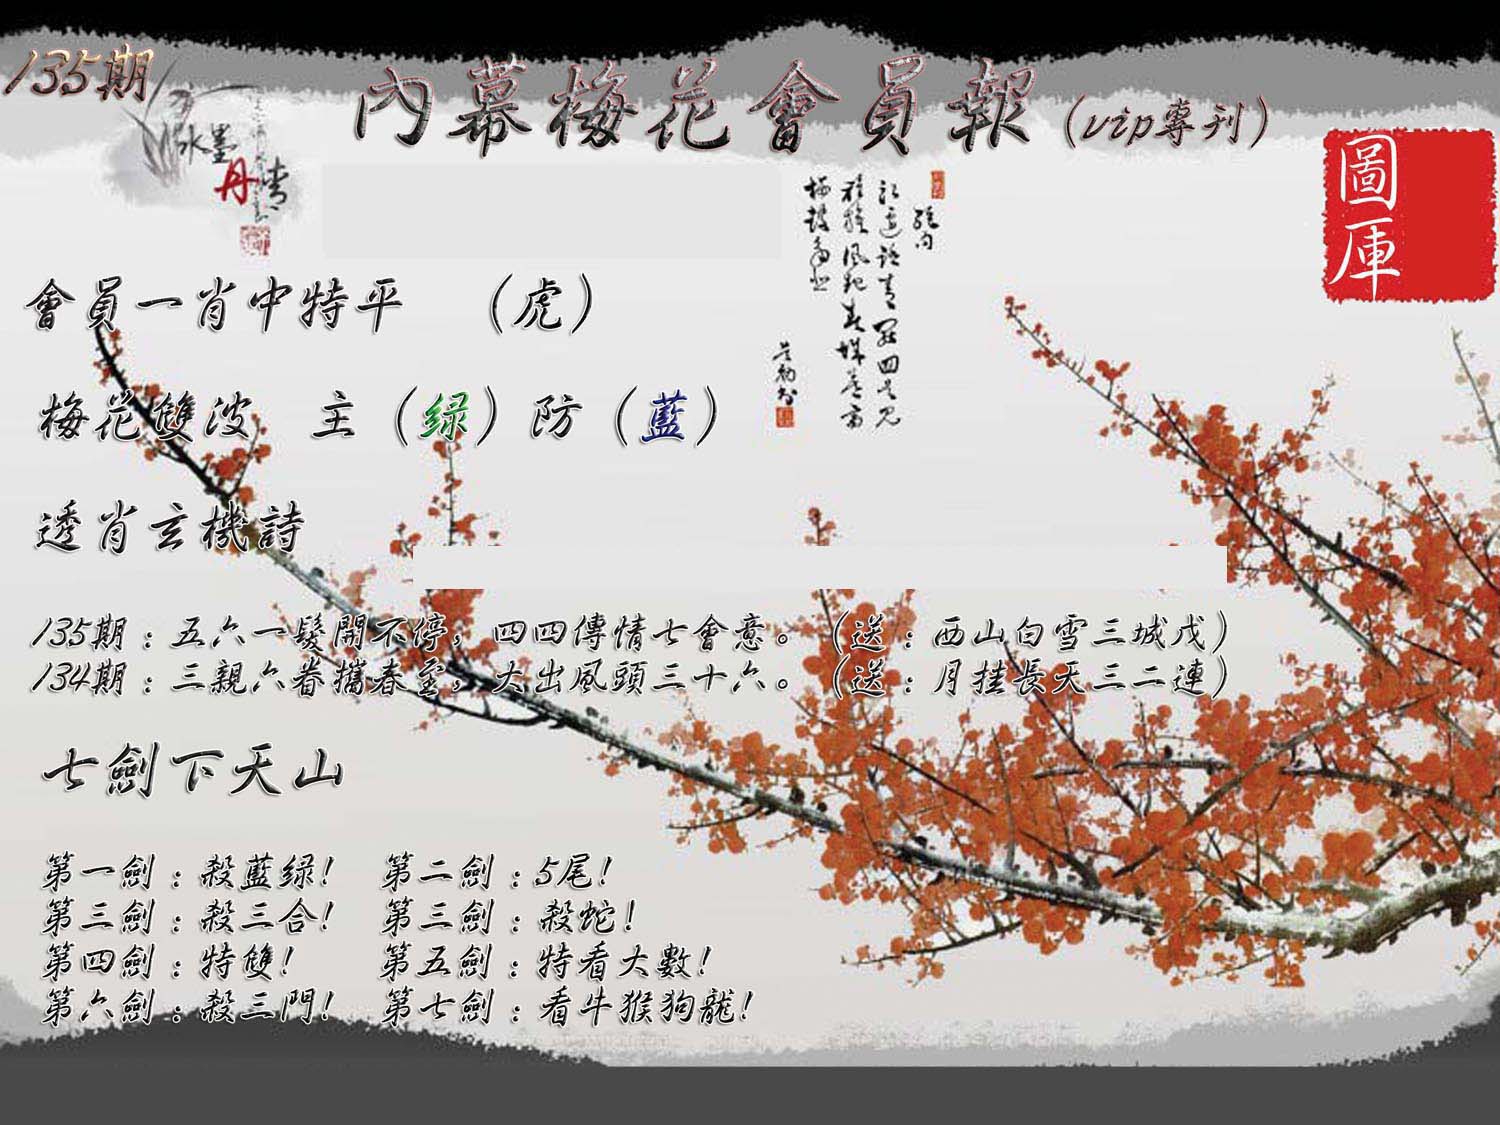 135期
內幕梅花會員報(vip專刊)
水墨
丹青
圖庫
會員一肖中特平 (虎)
梅花雙波 主(绿)防(藍)
透肖玄機詩
135期:五六一髮開不停,四四傳情七會意。(送:西山白雪三城戍)
134期:三親六眷攜春至,大出風頭三十六。(送:月挂長天三二連)
七劍下天山
第一劍:殺藍绿! 第二劍:5尾!
第三劍:殺三合! 第三劍:殺蛇!
第四劍:特雙! 第五劍:特看大數!
第六劍:殺三門! 第七劍:看牛猴狗龍!